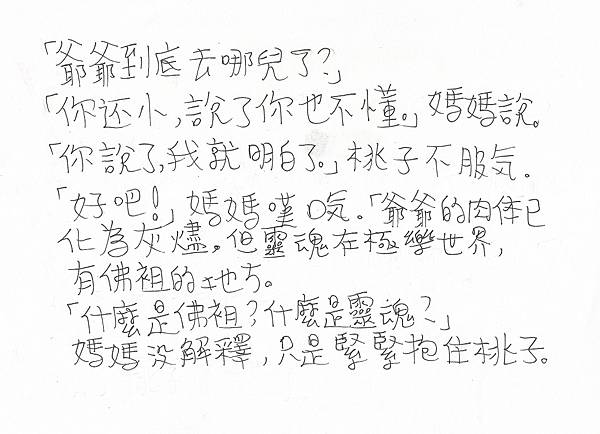 「爺爺到底去哪兒了?」
「你还小,說了你也不懂。」媽媽說。
「你說了,我就明白了。」桃子不服气.
「好吧!」媽媽嘆口气.「爺爺的肉体已
化為灰燼。但靈魂在極樂世界,
有佛祖的地方。
「什麼是佛祖?什麼是靈魂?」
媽媽没解釋,只是緊緊抱住桃子。